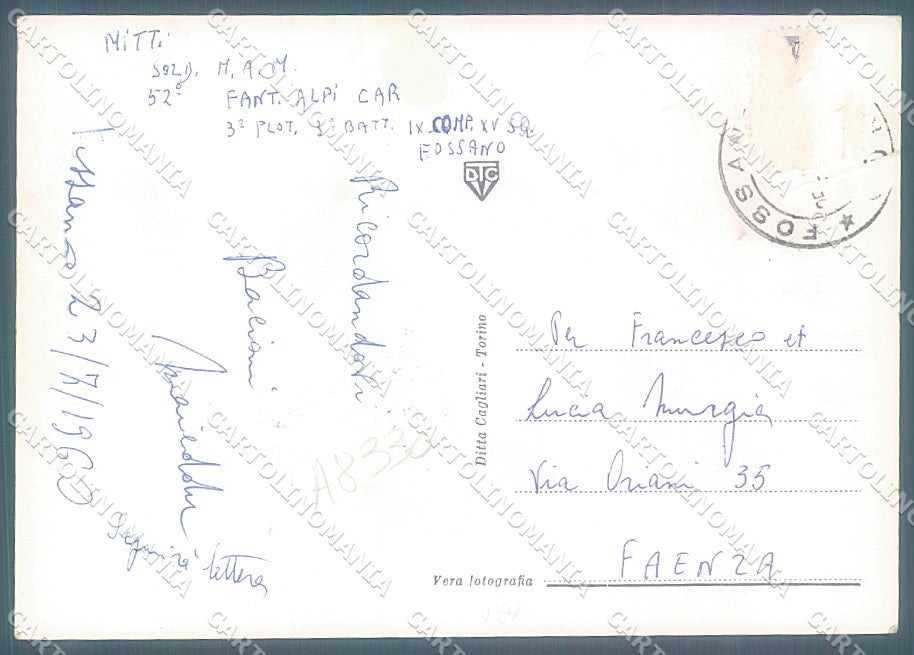 MITT.
SOLD. M. A. M.
52° FANT. ALPI CAR
3° PLOT. 3° BATT. IX COMP. XV SQ
FOSSANO
DTC
Fossano 23/7/1960
Ricordandovi
Bacioni
Seguirà lettera
A8330
Ditta Cagliari - Torino
Vera fotografia
Per Francesco et
Lucia Murgia
Via Oriani 35
FAENZA
FOSSA
CARTOLINOMANIA